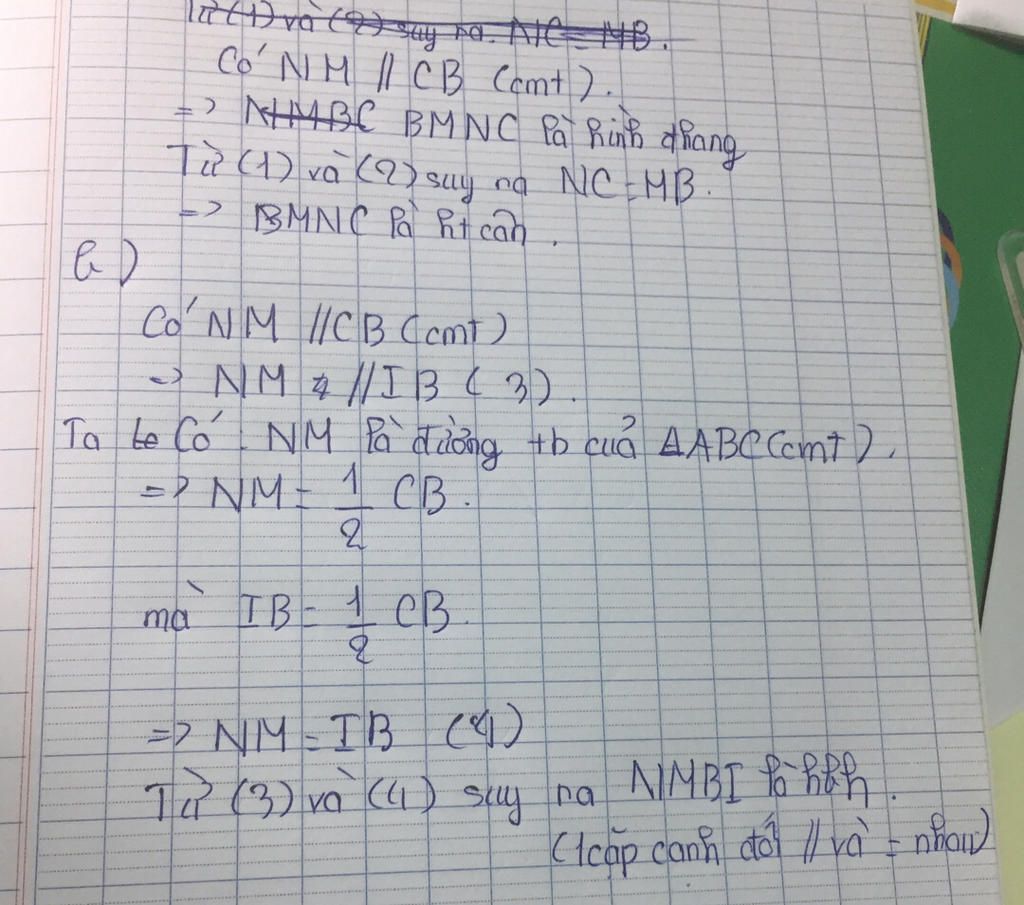 Từ (1) và (2) suy ra NC = MB.
Có NM // CB (cmt).
=> NMBC BMNC là hình thang
Từ (1) và (2) suy ra NC = MB.
=> BMNC là ht cân.
b)
Có NM // CB (cmt)
=> NM // IB (3).
Ta có NM là đường tb của ΔABC (cmt).
=> NM = 1/2 CB.
mà IB = 1/2 CB.
=> NM = IB (4)
Từ (3) và (4) suy ra NMBI là hbh.
(1 cặp cạnh đối // và = nhau)